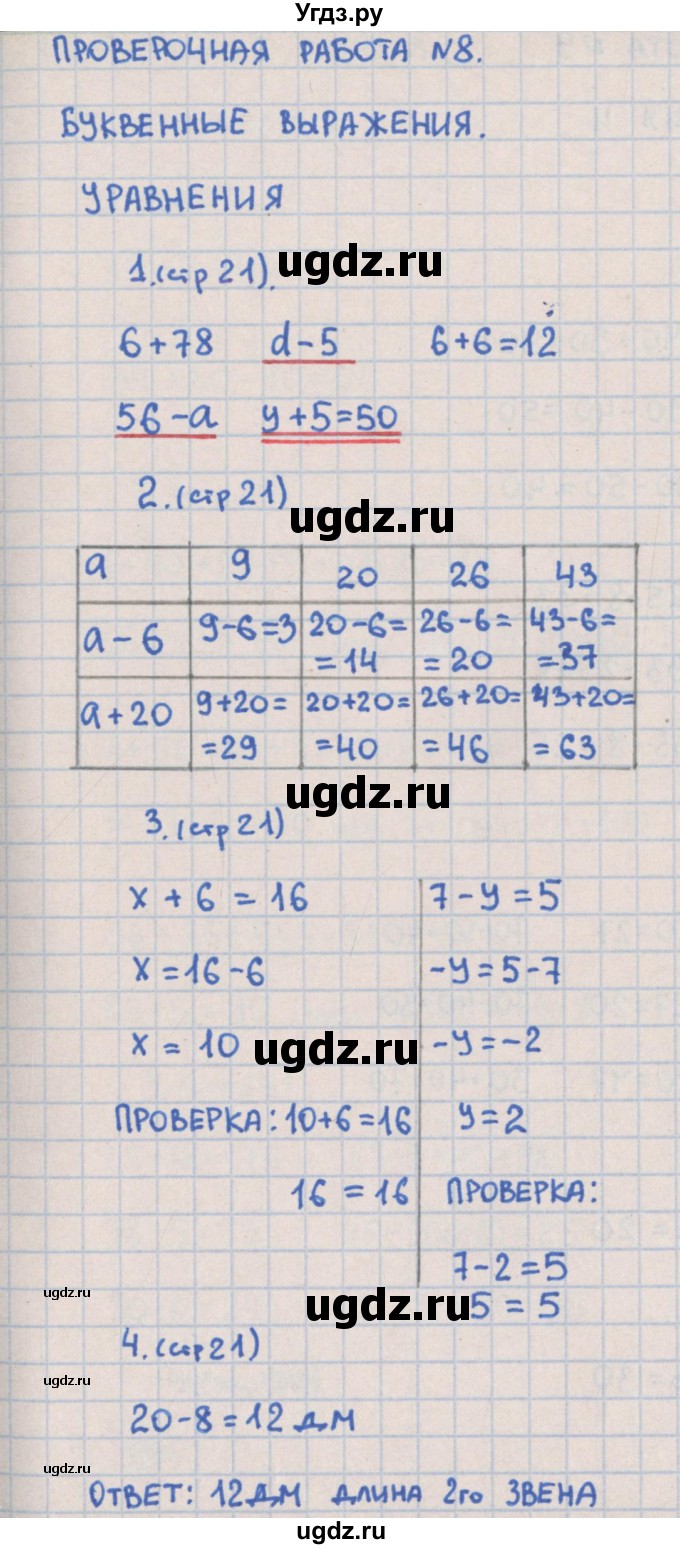 Угдз.ру
ПРОВЕРОЧНАЯ РАБОТА №8.
БУКВЕННЫЕ ВЫРАЖЕНИЯ.
УРАВНЕНИЯ
1.(стр 21).
ugdz.ru
6+78 d-5 6+6=12
56-а у+5=50
2.(стр 21)
ugdz.ru
а 9 20 26 43
а-6 9-6=3 20-6= 26-6= 43-6=
=14 =20 =37
а+20 9+20= 20+20= 26+20= 43+20=
=29 =40 =46 =63
ugdz.ru
3.(стр 21)
х + 6 = 16 7-у=5
х=16-6 -у=5-7
х = 10 -у=-2
ugdz.ru
ПРОВЕРКА: 10+6=16 у=2
16 = 16 ПРОВЕРКА:
7-2=5
ugdz.ru 5 = 5
ugdz.ru
4.(стр 21)
ugdz.ru
20-8=12 дм
ugdz.ru
ОТВЕТ: 12 дм ДЛИНА 2го ЗВЕНА
ugdz.ru